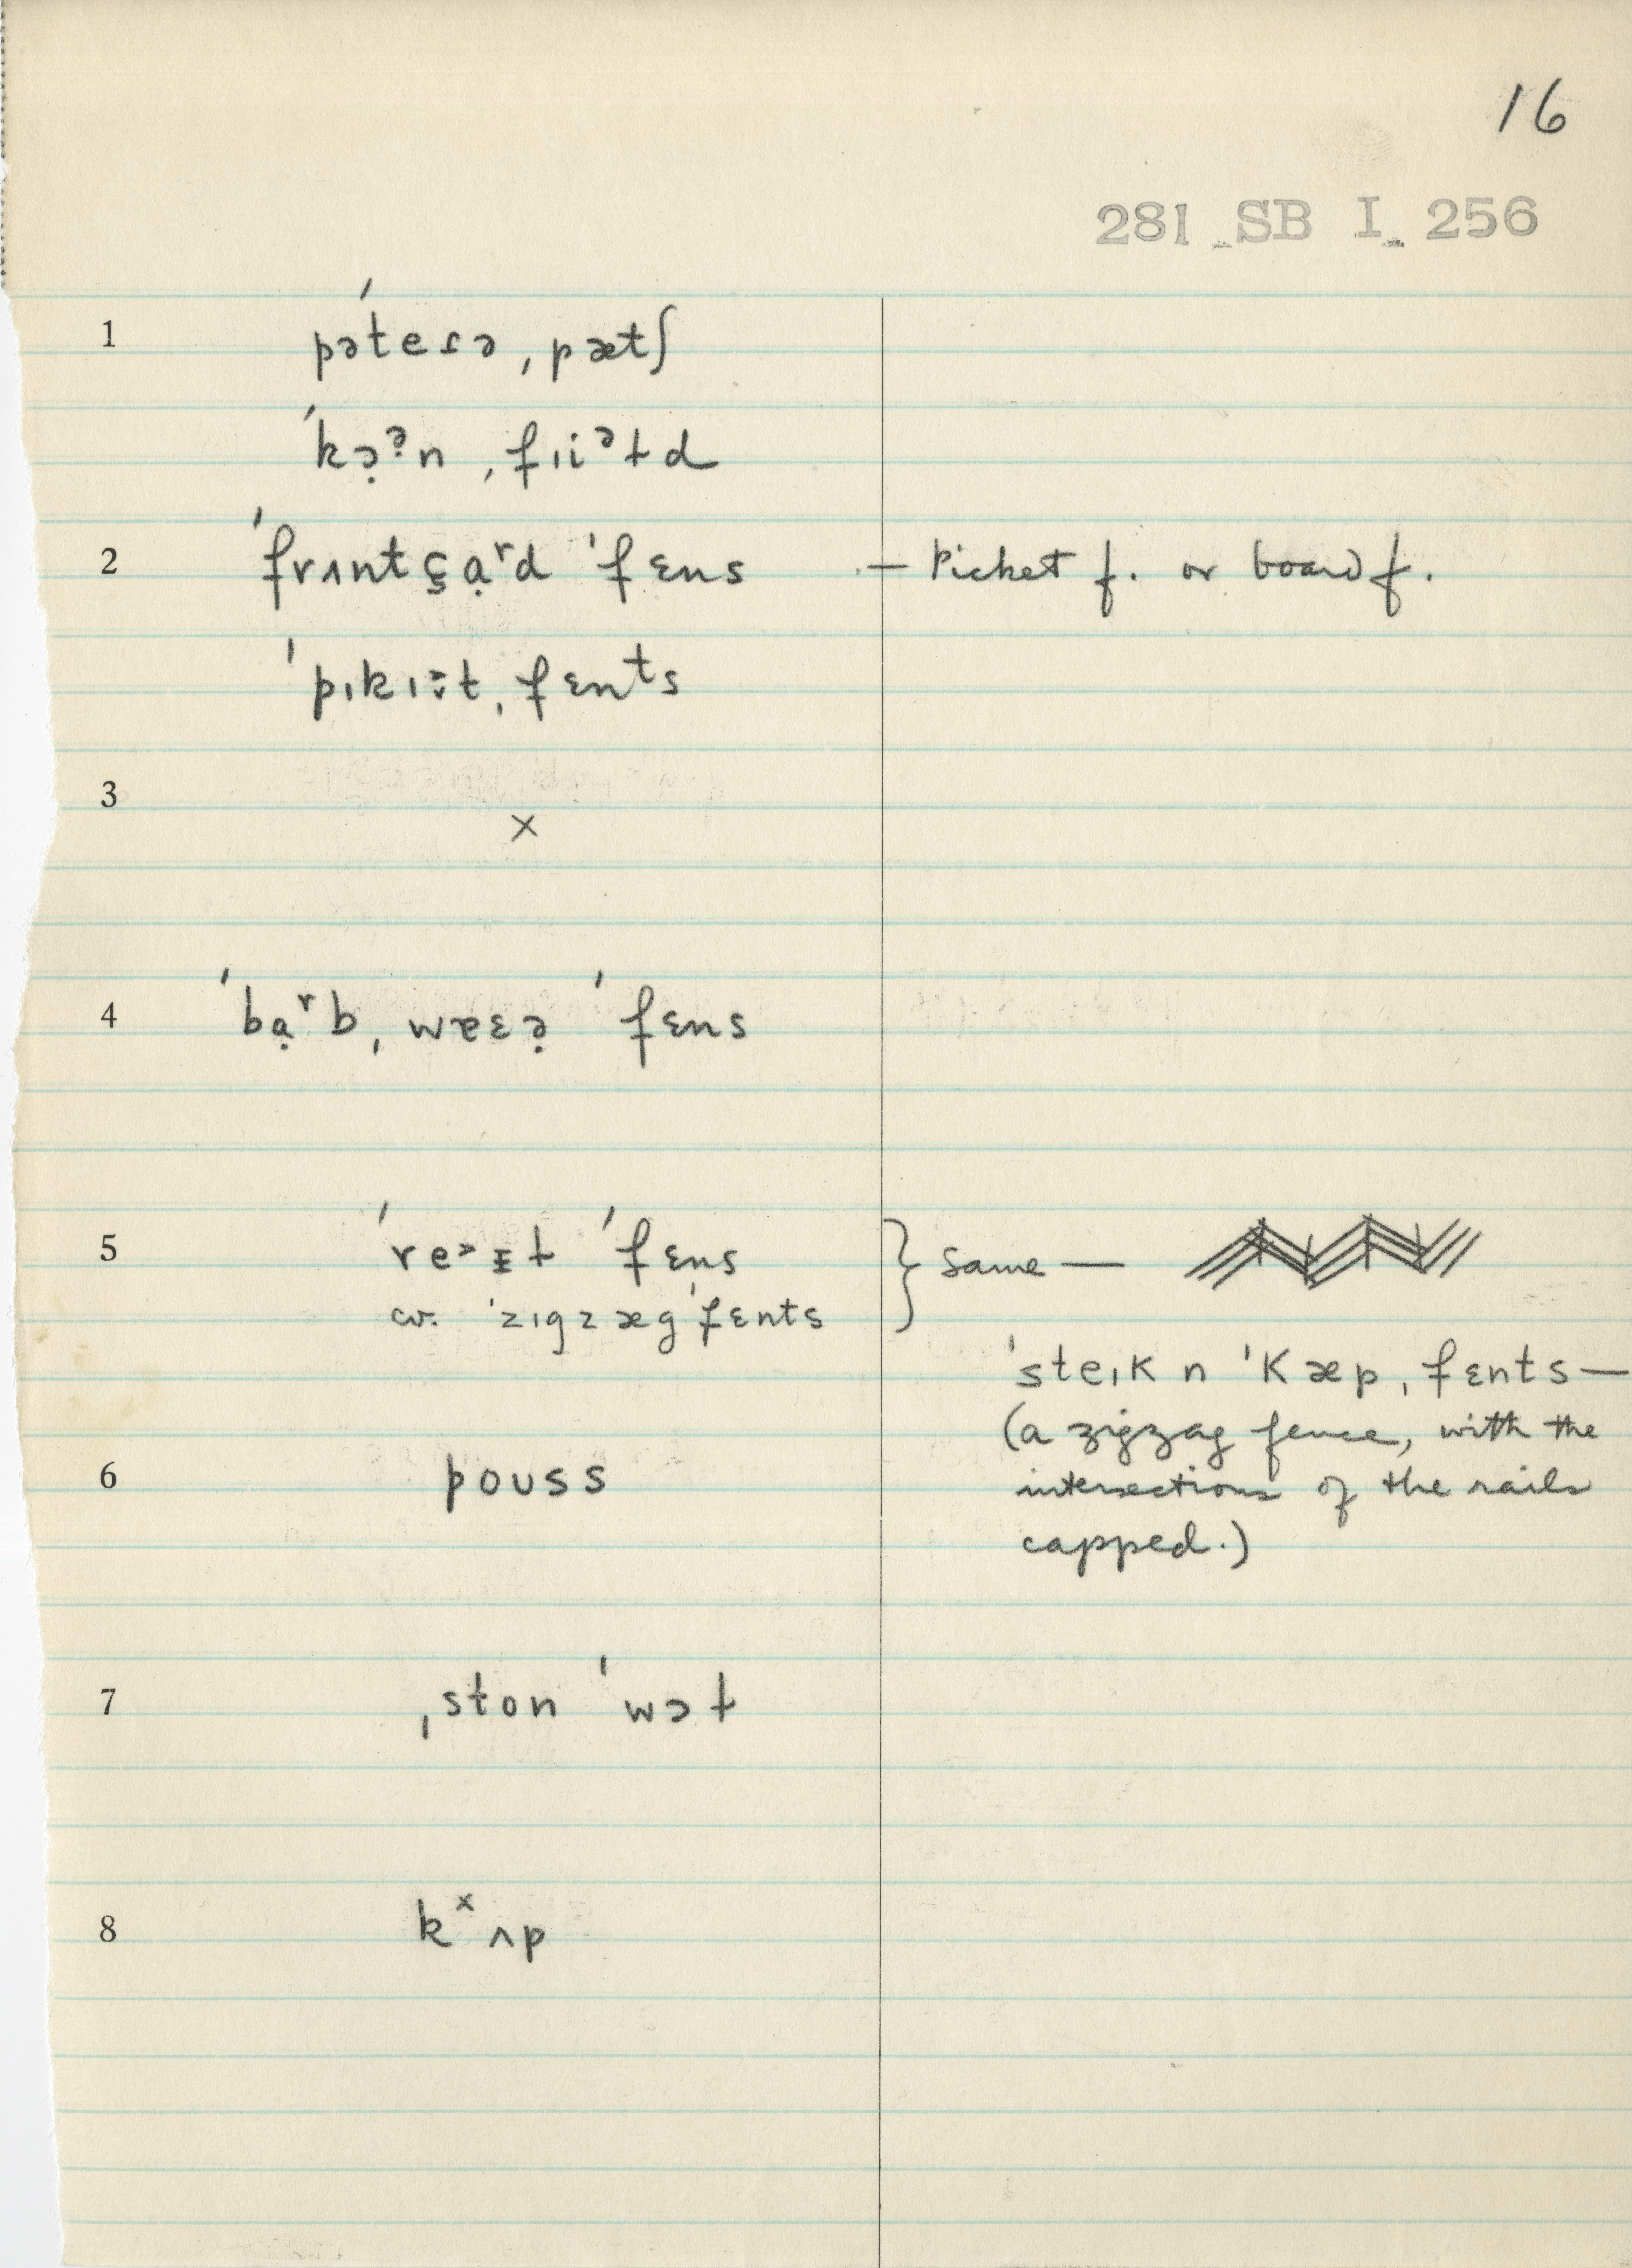 16
281 SB I 256
1 pəˈteɾə ˌpætʃ
ˈkɔ̣ᵊn ˌfɪiᵊɫd
2 ˈfrʌntʂɑ̣ʳd ˈfɛns — Picket f. or board f.
ˈpɪkɪt ˌfɛnᵗs
3 ×
4 ˈbɑ̣ʳb ˌwɐɛə̣ ˈfɛns
5 ˈre˃ɪɫ ˈfɛns } Same —
cv. ˈzɪgzægˌfɛnts
ˈsteɪk n ˈkæp ˌfɛnts —
(a zigzag fence, with the
6 poʊss intersections of the rails
capped.)
7 ˌston ˈwɔɫ
8 kˣʌp